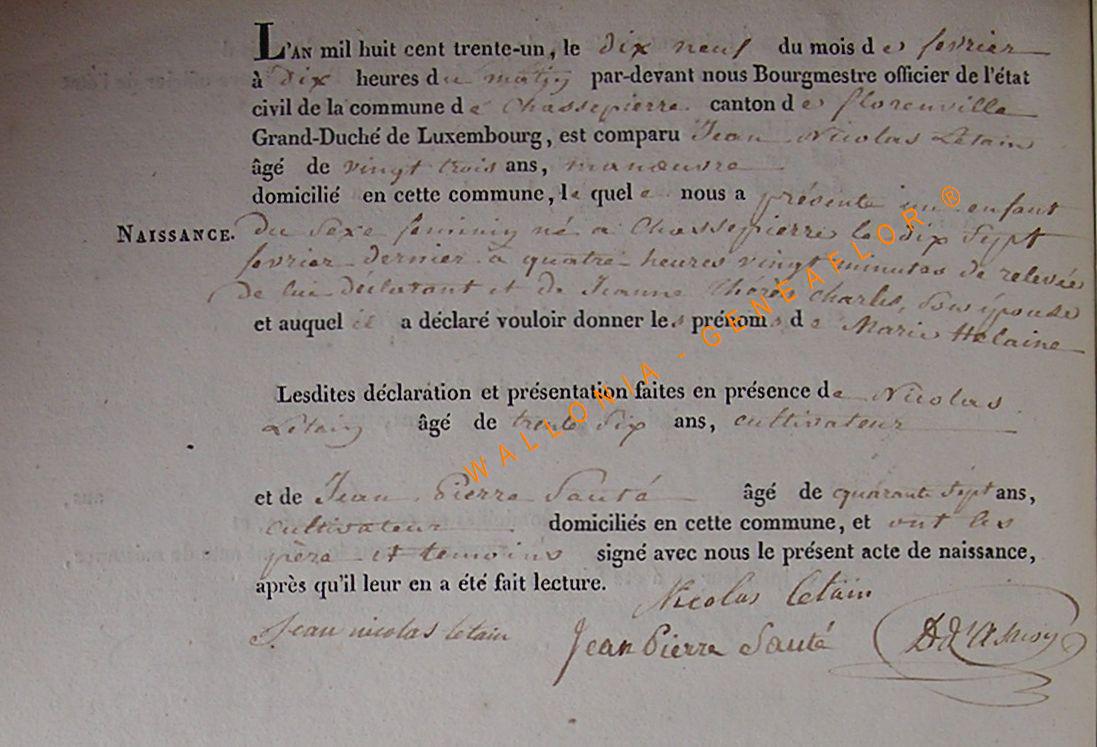 L'AN mil huit cent trente-un, le dix neuf du mois de fevrier
à dix heures du matin par-devant nous Bourgmestre officier de l'état
civil de la commune de Chassepierre canton de florenville
Grand-Duché de Luxembourg, est comparu Jean Nicolas Létain
âgé de vingt trois ans, manœuvre
domicilié en cette commune, le quel nous a présenté un enfant
NAISSANCE. du Sexe feminin né a Chassepierre le dix Sept
fevrier dernier a quatre heures vingt minutes de relevée
de lui déclarant et de Jeanne Thérèse Charles, Son épouse
et auquel il a déclaré vouloir donner les prénoms de Marie Helaine
Lesdites déclaration et présentation faites en présence de Nicolas
Létain âgé de trente Six ans, cultivateur
et de Jean Pierre Sauté âgé de quarante Sept ans,
cultivateur domiciliés en cette commune, et ont les
père et temoins signé avec nous le présent acte de naissance,
après qu'il leur en a été fait lecture.
Nicolas letain
Jean nicolas letain Jean Pierre Sauté
WALLONIA - GENEAFLOR ®